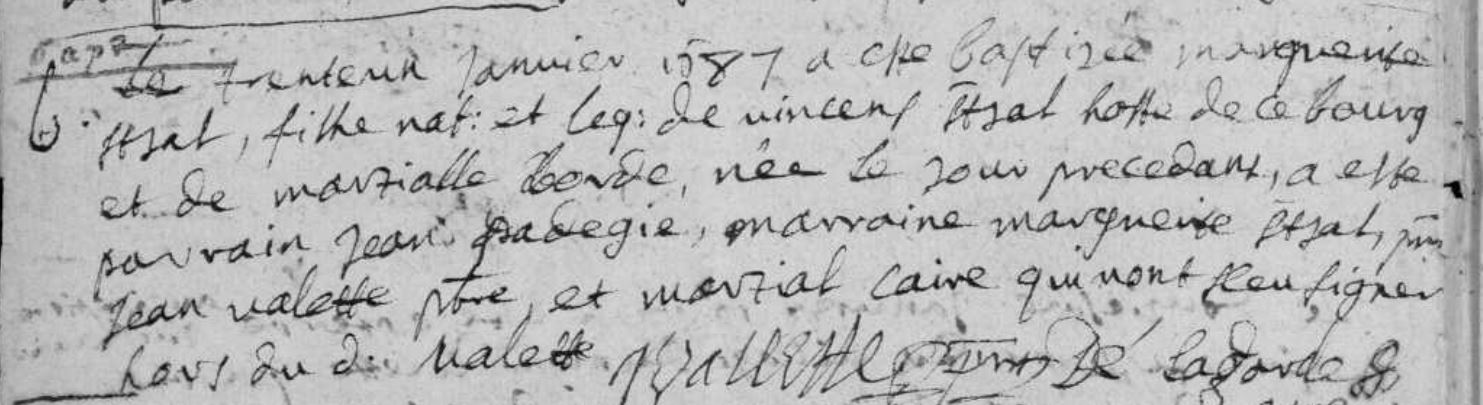 bapt
Le trenteun Janvier 1587 a este baptisée marguerite
, filhe nat: et leg: de vincens hoste de ce bourg
et de martialle Borde, née le jour precedant, a este
parrain Jean , marraine marguerite
Jean valette ptre, et martial Caire qui nont sceu signer
hors du d. valette Vallette De Lagorde